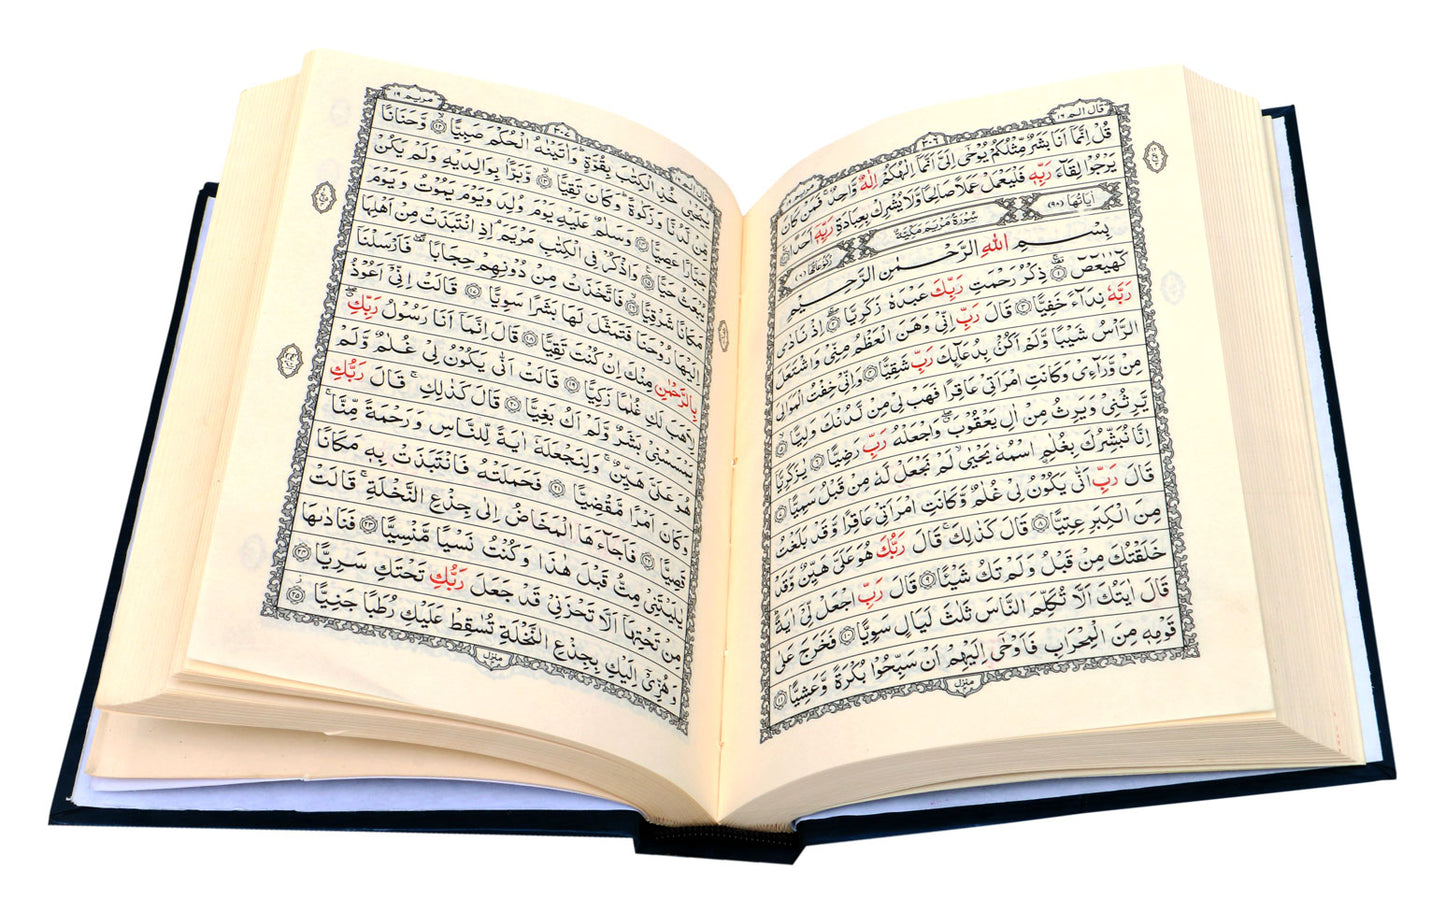 قال الم ١٦
٣٠٦
قُلْ اِنَّمَاۤ اَنَا بَشَرٌ مِّثْلُكُمْ يُوْحٰۤى اِلَىَّ اَنَّمَاۤ اِلٰهُكُمْ اِلٰهٌ وَّاحِدٌ ۚ فَمَنْ كَانَ
يَرْجُوْا لِقَآءَ رَبِّهٖ فَلْيَعْمَلْ عَمَلًا صَالِحًا وَّلَا يُشْرِكْ بِعِبَادَةِ رَبِّهٖۤ اَحَدًا
اٰيَاتُهَا (٩٨) سُوْرَةُ مَرْيَمَ مَكِّيَّةٌ رُكُوْعَاتُهَا (٦)
بِسْمِ اللهِ الرَّحْمٰنِ الرَّحِيْمِ
كٓهٰيٰعٓصٓ ﴿١﴾ ذِكْرُ رَحْمَتِ رَبِّكَ عَبْدَهٗ زَكَرِيَّا ﴿٢﴾ اِذْ نَادٰى
رَبَّهٗ نِدَآءً خَفِيًّا ﴿٣﴾ قَالَ رَبِّ اِنِّىْ وَهَنَ الْعَظْمُ مِنِّىْ وَاشْتَعَلَ
الرَّاْسُ شَيْبًا وَّلَمْ اَكُنْۢ بِدُعَآئِكَ رَبِّ شَقِيًّا ﴿٤﴾ وَاِنِّىْ خِفْتُ الْمَوَالِىَ
مِنْ وَّرَآءِىْ وَكَانَتِ امْرَاَتِىْ عَاقِرًا فَهَبْ لِىْ مِنْ لَّدُنْكَ وَلِيًّا ﴿٥﴾
يَّرِثُنِىْ وَيَرِثُ مِنْ اٰلِ يَعْقُوْبَ وَاجْعَلْهُ رَبِّ رَضِيًّا ﴿٦﴾ يٰزَكَرِيَّاۤ
اِنَّا نُبَشِّرُكَ بِغُلٰمِ ۨاسْمُهٗ يَحْيٰىۙ لَمْ نَجْعَلْ لَّهٗ مِنْ قَبْلُ سَمِيًّا ﴿٧﴾
قَالَ رَبِّ اَنّٰى يَكُوْنُ لِىْ غُلٰمٌ وَّكَانَتِ امْرَاَتِىْ عَاقِرًا وَّقَدْ بَلَغْتُ
مِنَ الْكِبَرِ عِتِيًّا ﴿٨﴾ قَالَ كَذٰلِكَ ۚ قَالَ رَبُّكَ هُوَ عَلَىَّ هَيِّنٌ وَّقَدْ
خَلَقْتُكَ مِنْ قَبْلُ وَلَمْ تَكُ شَيْئًا ﴿٩﴾ قَالَ رَبِّ اجْعَلْ لِّىْۤ اٰيَةً ؕ
قَالَ اٰيَتُكَ اَلَّا تُكَلِّمَ النَّاسَ ثَلٰثَ لَيَالٍ سَوِيًّا ﴿١٠﴾ فَخَرَجَ عَلٰى
قَوْمِهٖ مِنَ الْمِحْرَابِ فَاَوْحٰۤى اِلَيْهِمْ اَنْ سَبِّحُوْا بُكْرَةً وَّعَشِيًّا ﴿١١﴾
منزل
قال الم ١٦
٣٠٧
مريم ١٩
يٰيَحْيٰى خُذِ الْكِتٰبَ بِقُوَّةٍ ؕ وَاٰتَيْنٰهُ الْحُكْمَ صَبِيًّا ﴿١٢﴾ وَّحَنَانًا
مِّنْ لَّدُنَّا وَزَكٰوةً ؕ وَكَانَ تَقِيًّا ﴿١٣﴾ وَّبَرًّۢا بِوَالِدَيْهِ وَلَمْ يَكُنْ
جَبَّارًا عَصِيًّا ﴿١٤﴾ وَسَلٰمٌ عَلَيْهِ يَوْمَ وُلِدَ وَيَوْمَ يَمُوْتُ وَيَوْمَ
يُبْعَثُ حَيًّا ﴿١٥﴾ وَاذْكُرْ فِى الْكِتٰبِ مَرْيَمَ ۘ اِذِ انْتَبَذَتْ مِنْ اَهْلِهَا
مَكَانًا شَرْقِيًّا ﴿١٦﴾ فَاتَّخَذَتْ مِنْ دُوْنِهِمْ حِجَابًا ۖ فَاَرْسَلْنَاۤ
اِلَيْهَا رُوْحَنَا فَتَمَثَّلَ لَهَا بَشَرًا سَوِيًّا ﴿١٧﴾ قَالَتْ اِنِّىْۤ اَعُوْذُ
بِالرَّحْمٰنِ مِنْكَ اِنْ كُنْتَ تَقِيًّا ﴿١٨﴾ قَالَ اِنَّمَاۤ اَنَا رَسُوْلُ رَبِّكِ ۖ
لِاَهَبَ لَكِ غُلٰمًا زَكِيًّا ﴿١٩﴾ قَالَتْ اَنّٰى يَكُوْنُ لِىْ غُلٰمٌ وَّلَمْ
يَمْسَسْنِىْ بَشَرٌ وَّلَمْ اَكُ بَغِيًّا ﴿٢٠﴾ قَالَ كَذٰلِكِ ۚ قَالَ رَبُّكِ
هُوَ عَلَىَّ هَيِّنٌ ۚ وَلِنَجْعَلَهٗۤ اٰيَةً لِّلنَّاسِ وَرَحْمَةً مِّنَّا ۚ
وَكَانَ اَمْرًا مَّقْضِيًّا ﴿٢١﴾ فَحَمَلَتْهُ فَانْتَبَذَتْ بِهٖ مَكَانًا
قَصِيًّا ﴿٢٢﴾ فَاَجَآءَهَا الْمَخَاضُ اِلٰى جِذْعِ النَّخْلَةِ ۚ قَالَتْ
يٰلَيْتَنِىْ مِتُّ قَبْلَ هٰذَا وَكُنْتُ نَسْيًا مَّنْسِيًّا ﴿٢٣﴾ فَنَادٰىهَا
مِنْ تَحْتِهَاۤ اَلَّا تَحْزَنِىْ قَدْ جَعَلَ رَبُّكِ تَحْتَكِ سَرِيًّا ﴿٢٤﴾
وَهُزِّىْۤ اِلَيْكِ بِجِذْعِ النَّخْلَةِ تُسٰقِطْ عَلَيْكِ رُطَبًا جَنِيًّا ﴿٢٥﴾
منزل